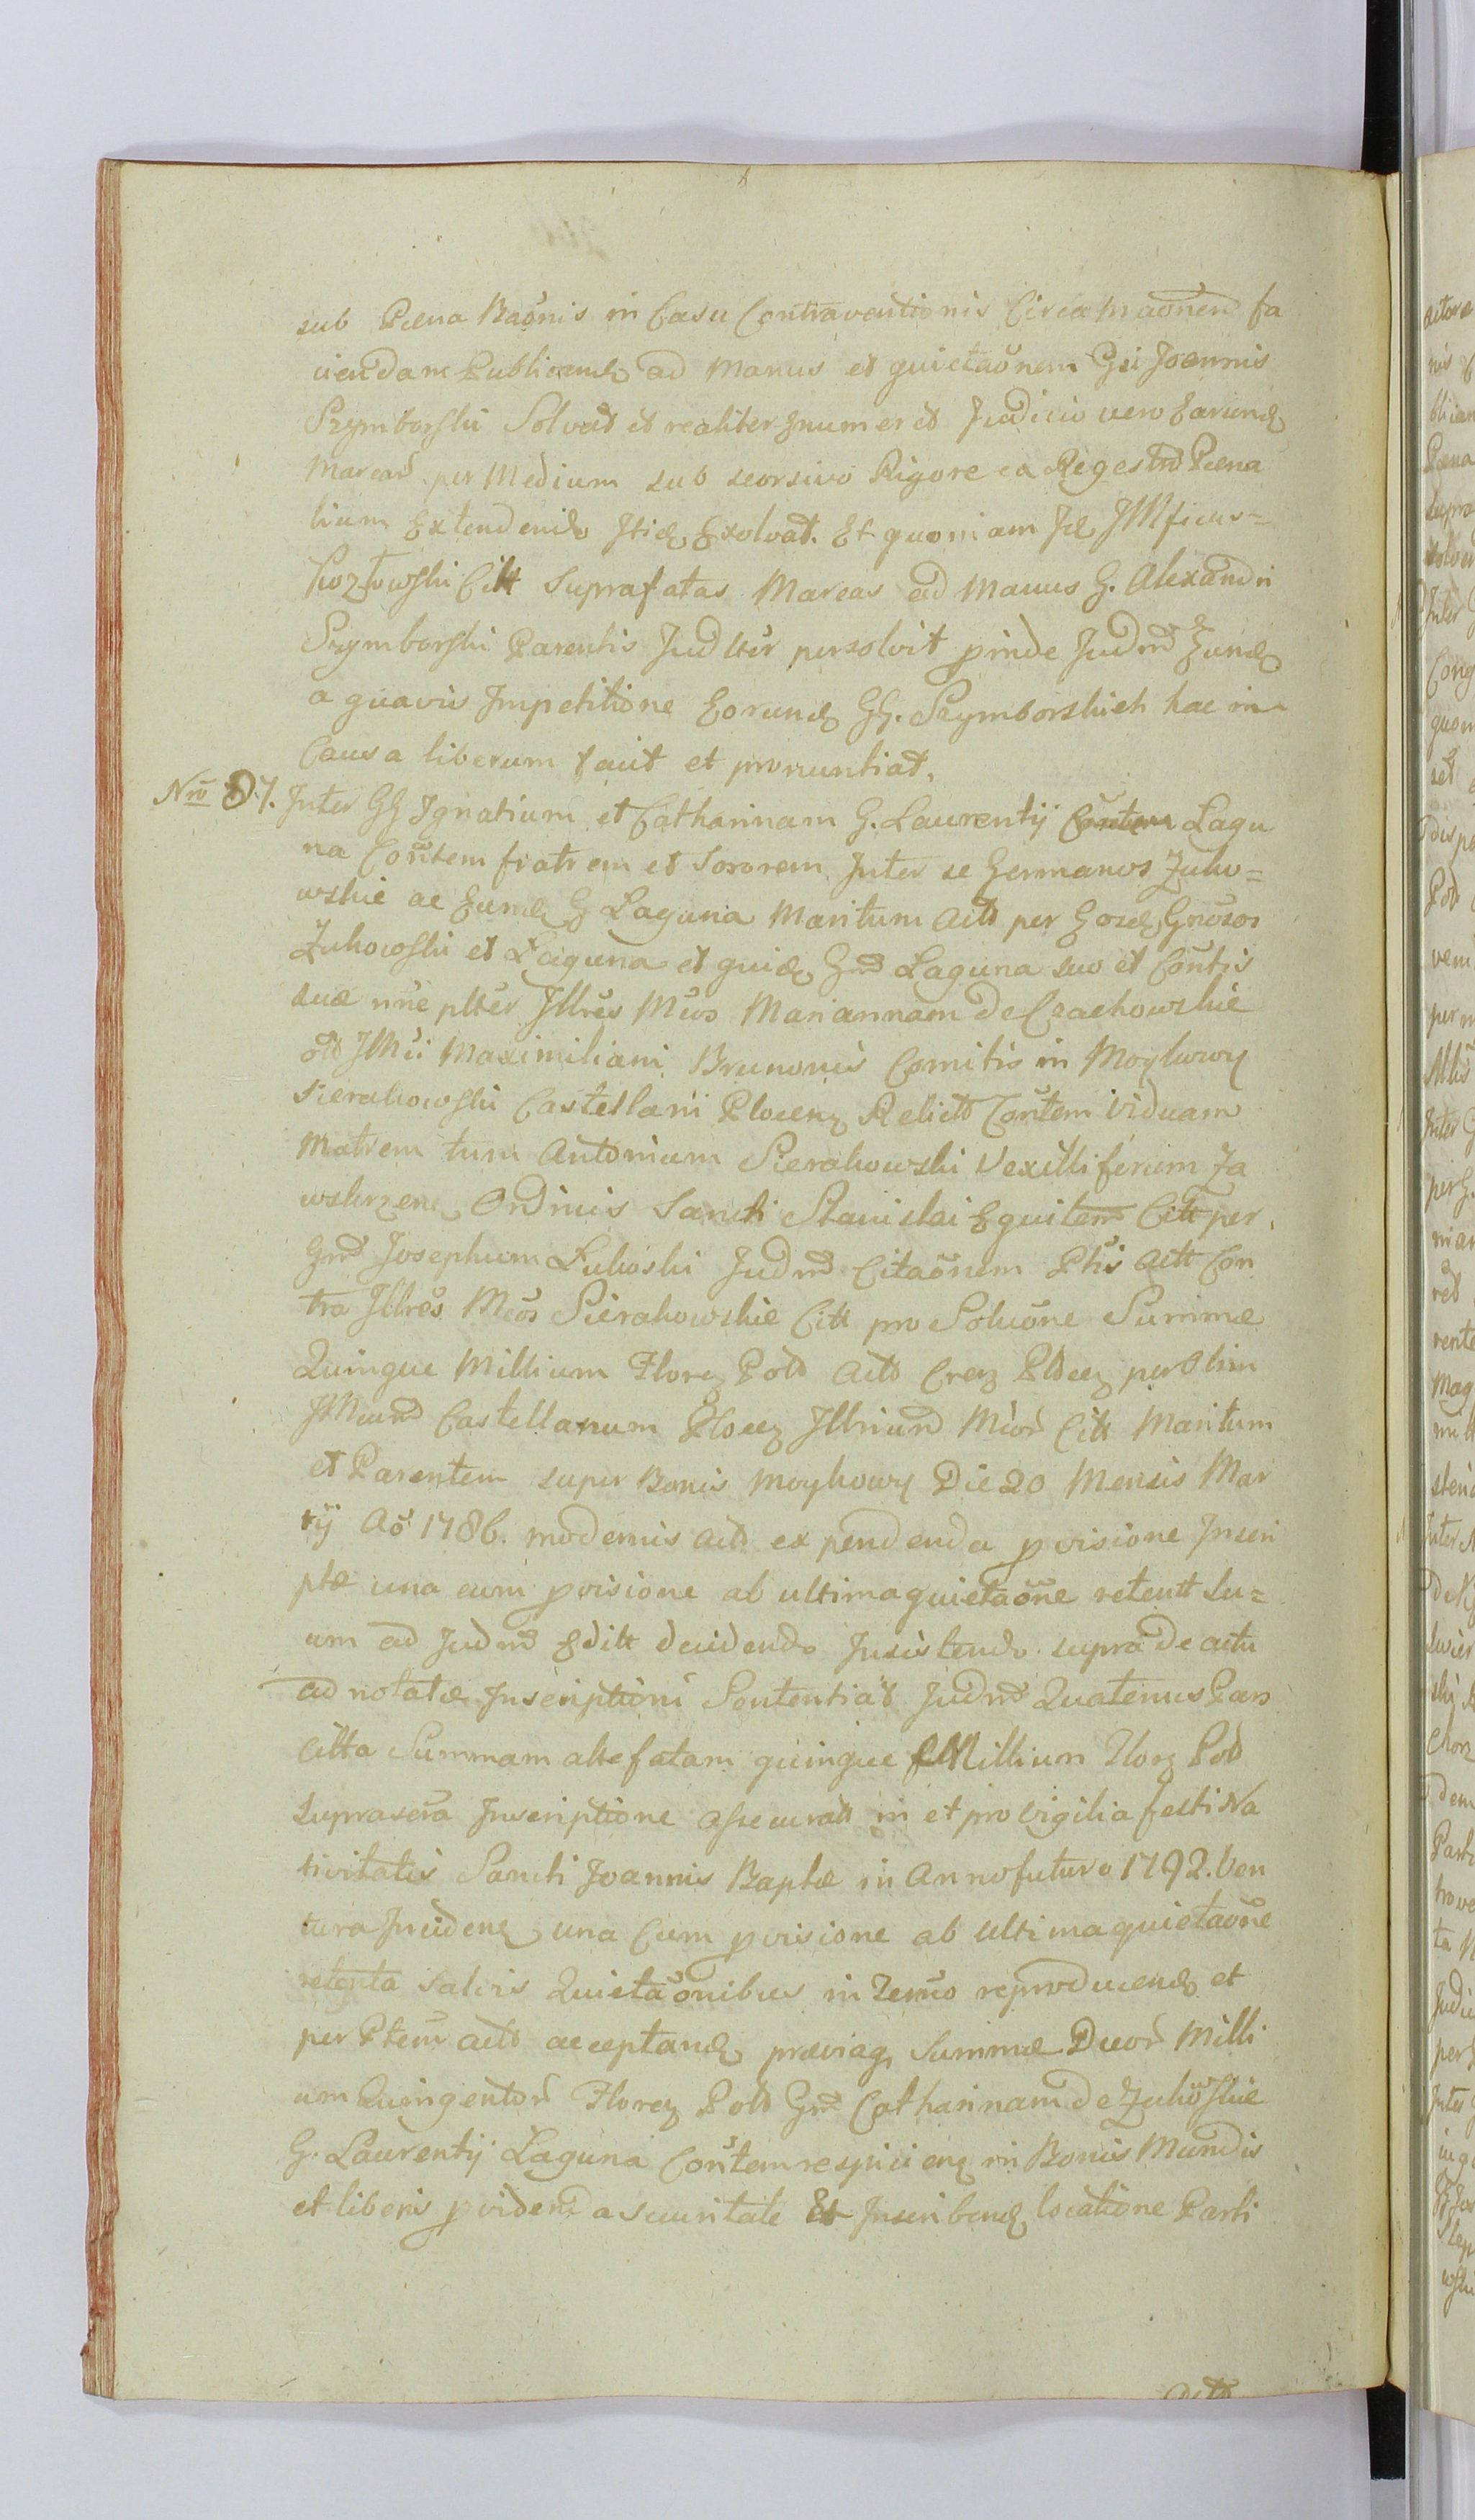 sub Pœna Baõnis in Casu Contraventionis Circa maõnem fa
ciendam Publicand ad Manus et quietaõnem Gsi Joannis
Szymborski Solvat et realiter numeret Judicio vero Earund
Marcar per Medium sub seorsivo Rigore ex Regestro Pœna
lium Extendendo Itid Exolvat. Et quoniam Id JMficus=
Kozłowski Citt Suprafatas Marcas ad Manus G. Alexandri
Szymborski Parentis Judlter persolvit pinde Judm Eund
a quavis Impetitione Eorund GG. Szymborskich hac in
Causa liberum facit et pronuntiat.
Nro 87. Inter GG Ignatium et Catharinam G. Laurentij Lagu
na Coñtem fratrem et Sororem Inter se Germanos Zuko=
wskie ac Eund G Laguna Maritum Acts per Eosd Gñosos
Zukowski et Laguna et quid Gm Laguna suo et Coñtis
suæ nñe plter Jllres Mcos Mariannam de Czachowskie
old JMci Maximiliani Brunonis Comitis in Moykowy
Sierakowski Castellani Plocen Relict Coñtem Viduam
Matrem tum Antonium Sierakowski Vexilliferum Za
wskrzen Ordinis Sancti Stanislai Equitem Citt per
Gm Josephum Lukoski Judm Citaõnem Ptis Actt Con
tra Jllres Mcos Sierakowskie Citt pro Soluõne Summæ
Quinque Millium Floren Pold Acto Cren Plocen per Olim
JMcum Castellanum Plocen Jllrium Mcor Citt Maritum
et Parentem super Bonis Moykowy Die 20 Mensis Mar
tij Aõ 1786. modernis Acts expendenda pvisione Inscri
ptæ una cum pvisione ab ultima quietaõne retentt Su=
um ad Judm Editt decidendo Insistendo supra de actu
adnotatæ Inscriptioni Sententiat Judm Quatenus Pars
Citta Summam altefatam quinque Millium Floren Pold
suprascra Inscriptione assecuratt in et pro Vigilia festi Na
tivitatis Sancti Joannis Baptæ in Anno futuro 1792. Ven
tura Inciden una Cum pvisione ab ultima quietaõne
retenta Salvis Quietaõnibus in Termo reproducend et
per Ptem acts acceptand præviaq Summæ Duor Milli
um Quingentor Floren Pold Gm Catharinam de Zukoskie
G. Laurentij Laguna Coñtem respicien in Bonis Mundis
et liberis pvidenda securitate Et Inscribend locatione Parti